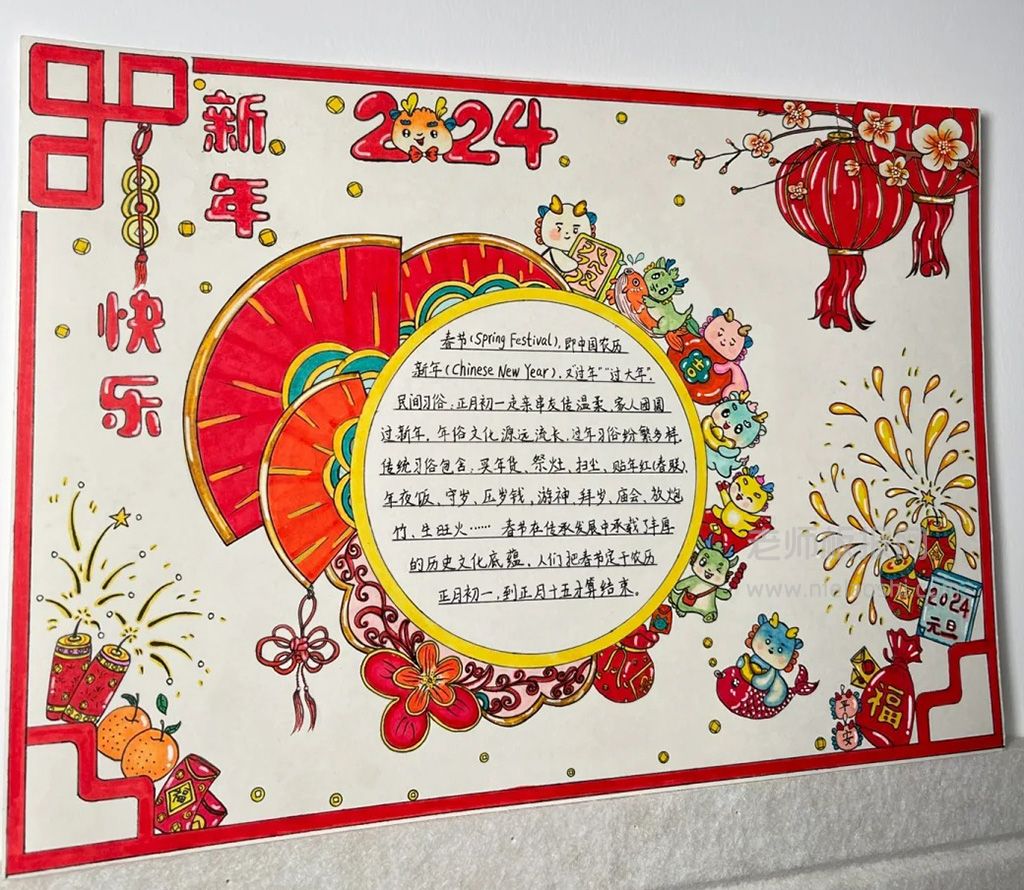 新年
快乐
2024
春节(Spring Festival),即中国农历
新年(Chinese New Year),又过年""过大年".
民间习俗:正月初一走亲串友传温柔、家人团圆
过新年,年俗文化源远流长,过年习俗纷繁多样.
传统习俗包含:买年货、祭灶、扫尘、贴年红(春联)、
年夜饭、守岁、压岁钱、游神、拜岁、庙会、放炮
竹、生旺火……春节在传承发展中承载了丰厚
的历史文化底蕴,人们把春节定于农历
正月初一,到正月十五才算结束。
2024
元旦
福
平
安